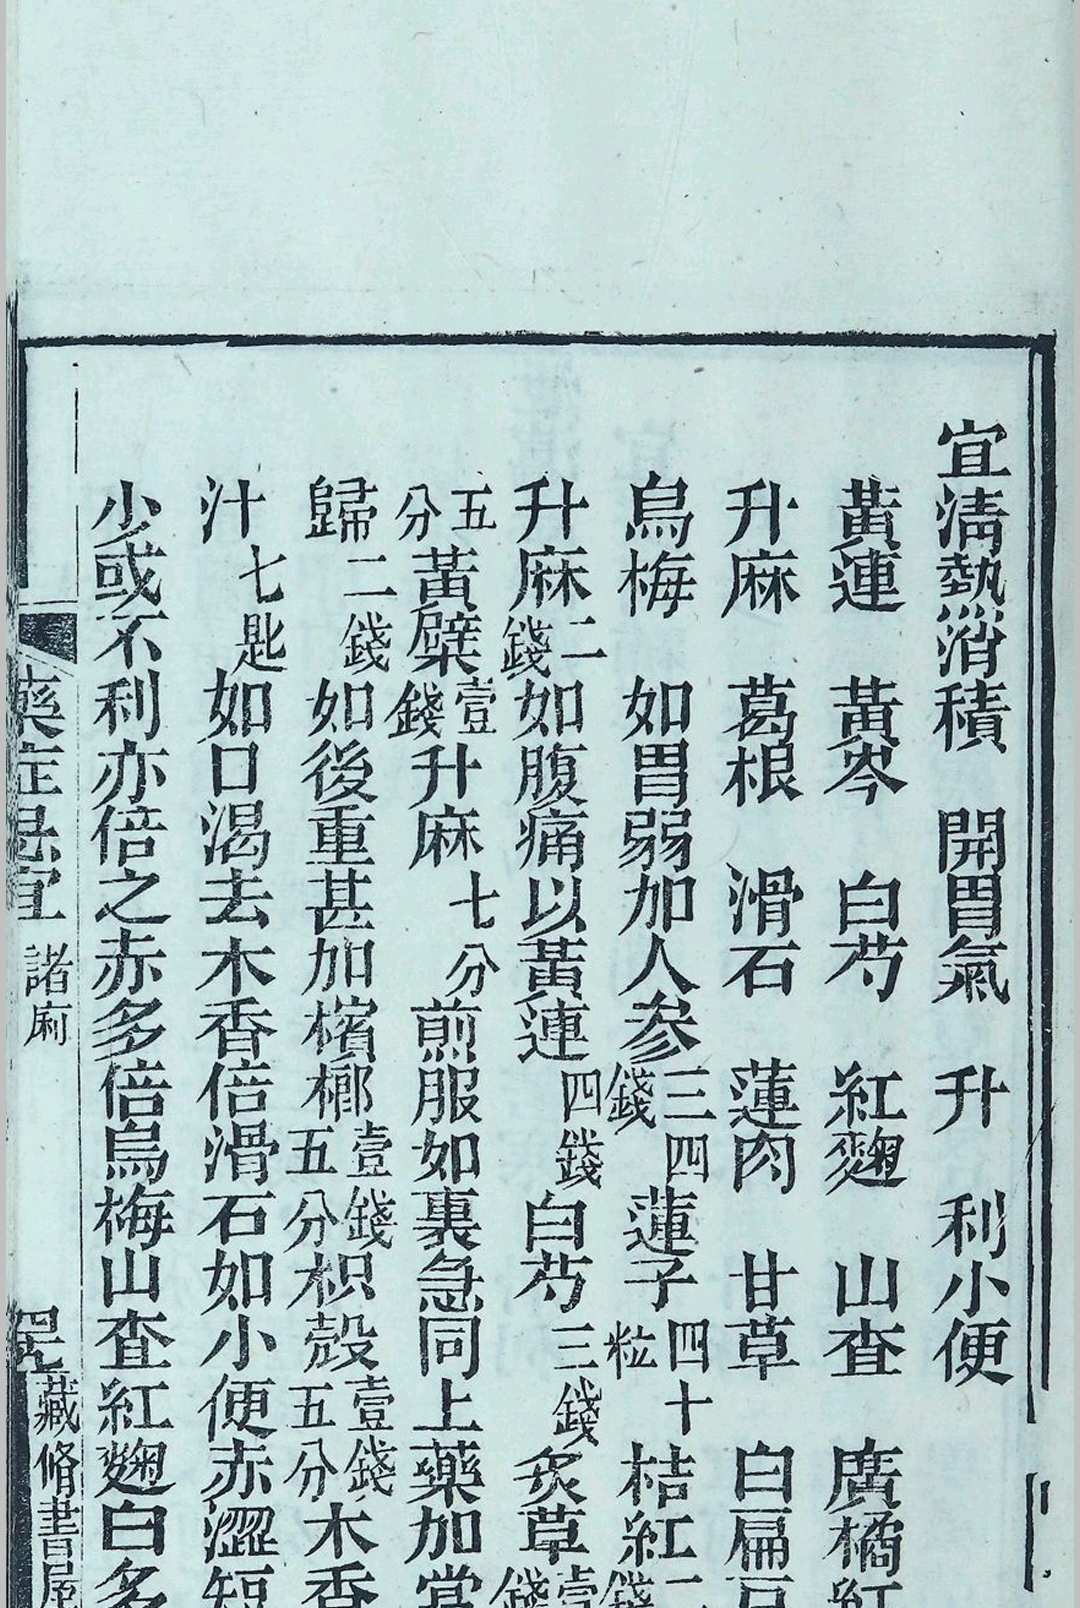 宜淸熱消積　開胃氣　升　利小便
黃連　黃岑　白芍　紅麯　山查　廣橘紅
升麻　葛根　滑石　蓮肉　甘草　白扁豆
烏梅　如胃弱加人參三四錢蓮子四十粒桔紅二錢
升麻二錢如腹痛以黃連四錢白芍三錢炙草壹錢
五分黃檗壹錢升麻七分煎服如裏急同上藥加當
歸二錢如後重甚加檳榔壹錢五分枳殼壹錢五分木香
汁七匙如口渴去木香倍滑石如小便赤澀短
少或不利亦倍之赤多倍烏梅山查紅麯白多
藥症忌宜　諸痢　藏脩書屋